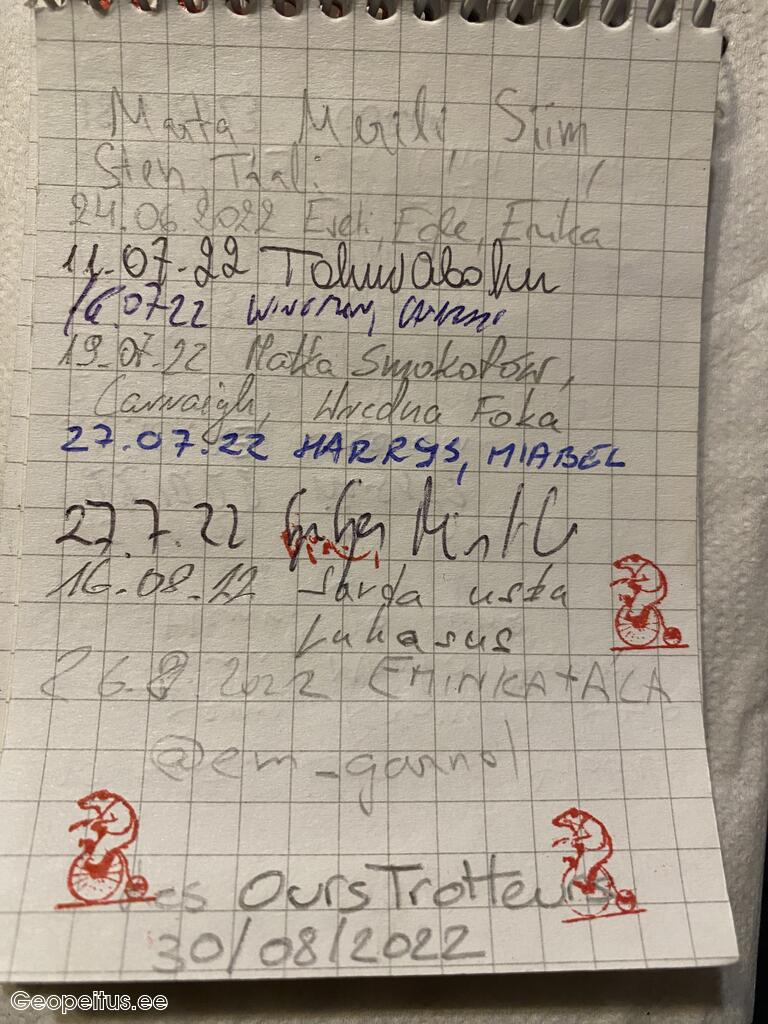 Marta Merili, Siim
Sten, Triali
24.06.2022 Eveli, Eğe, Erika
11.07.22 Tohuwabohu
16.0722
19.07.22 Matka Smokotów,
Carraigh, Wredna Foka
27.07.22 HARRYS, MIABEL
27.7.22
16.08.22 Sarda usta
Lukasus
26.8.2022 EMINKA+ALA
@em_garnol
Les OursTrotteurs
30/08/2022
Geopeitus.ee